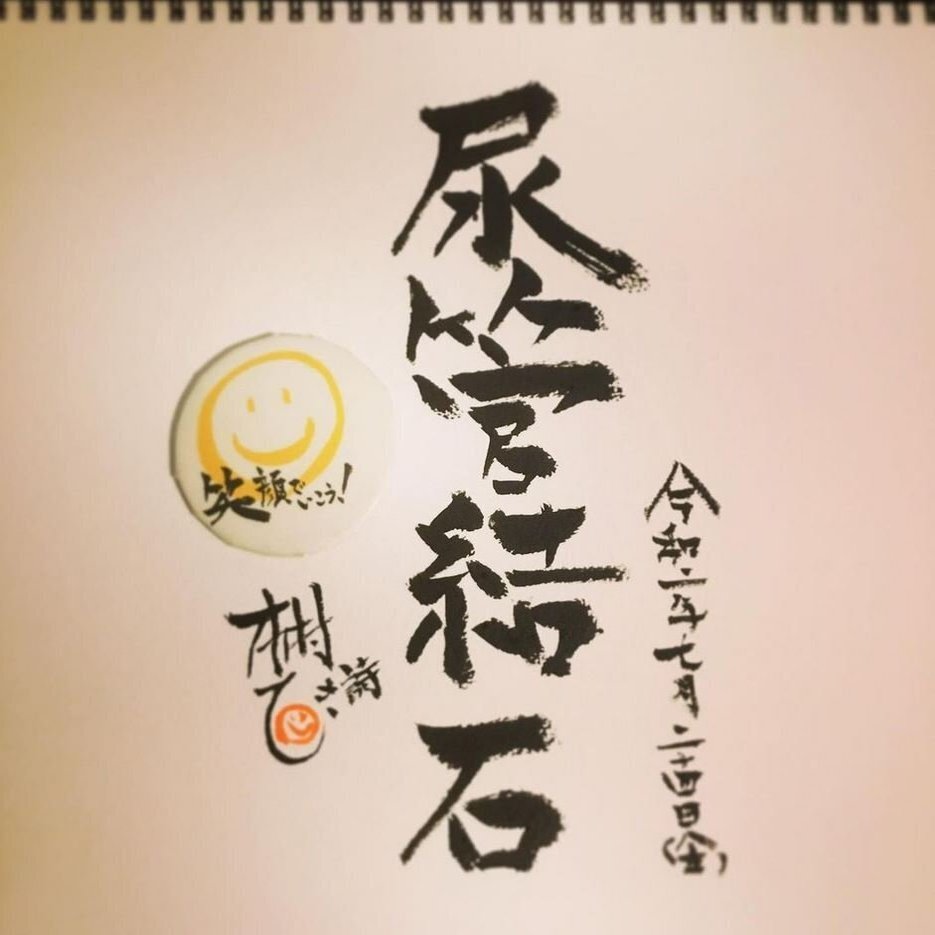 令和二年七月二十四日(金)
尿管結石
笑顔でいこう!